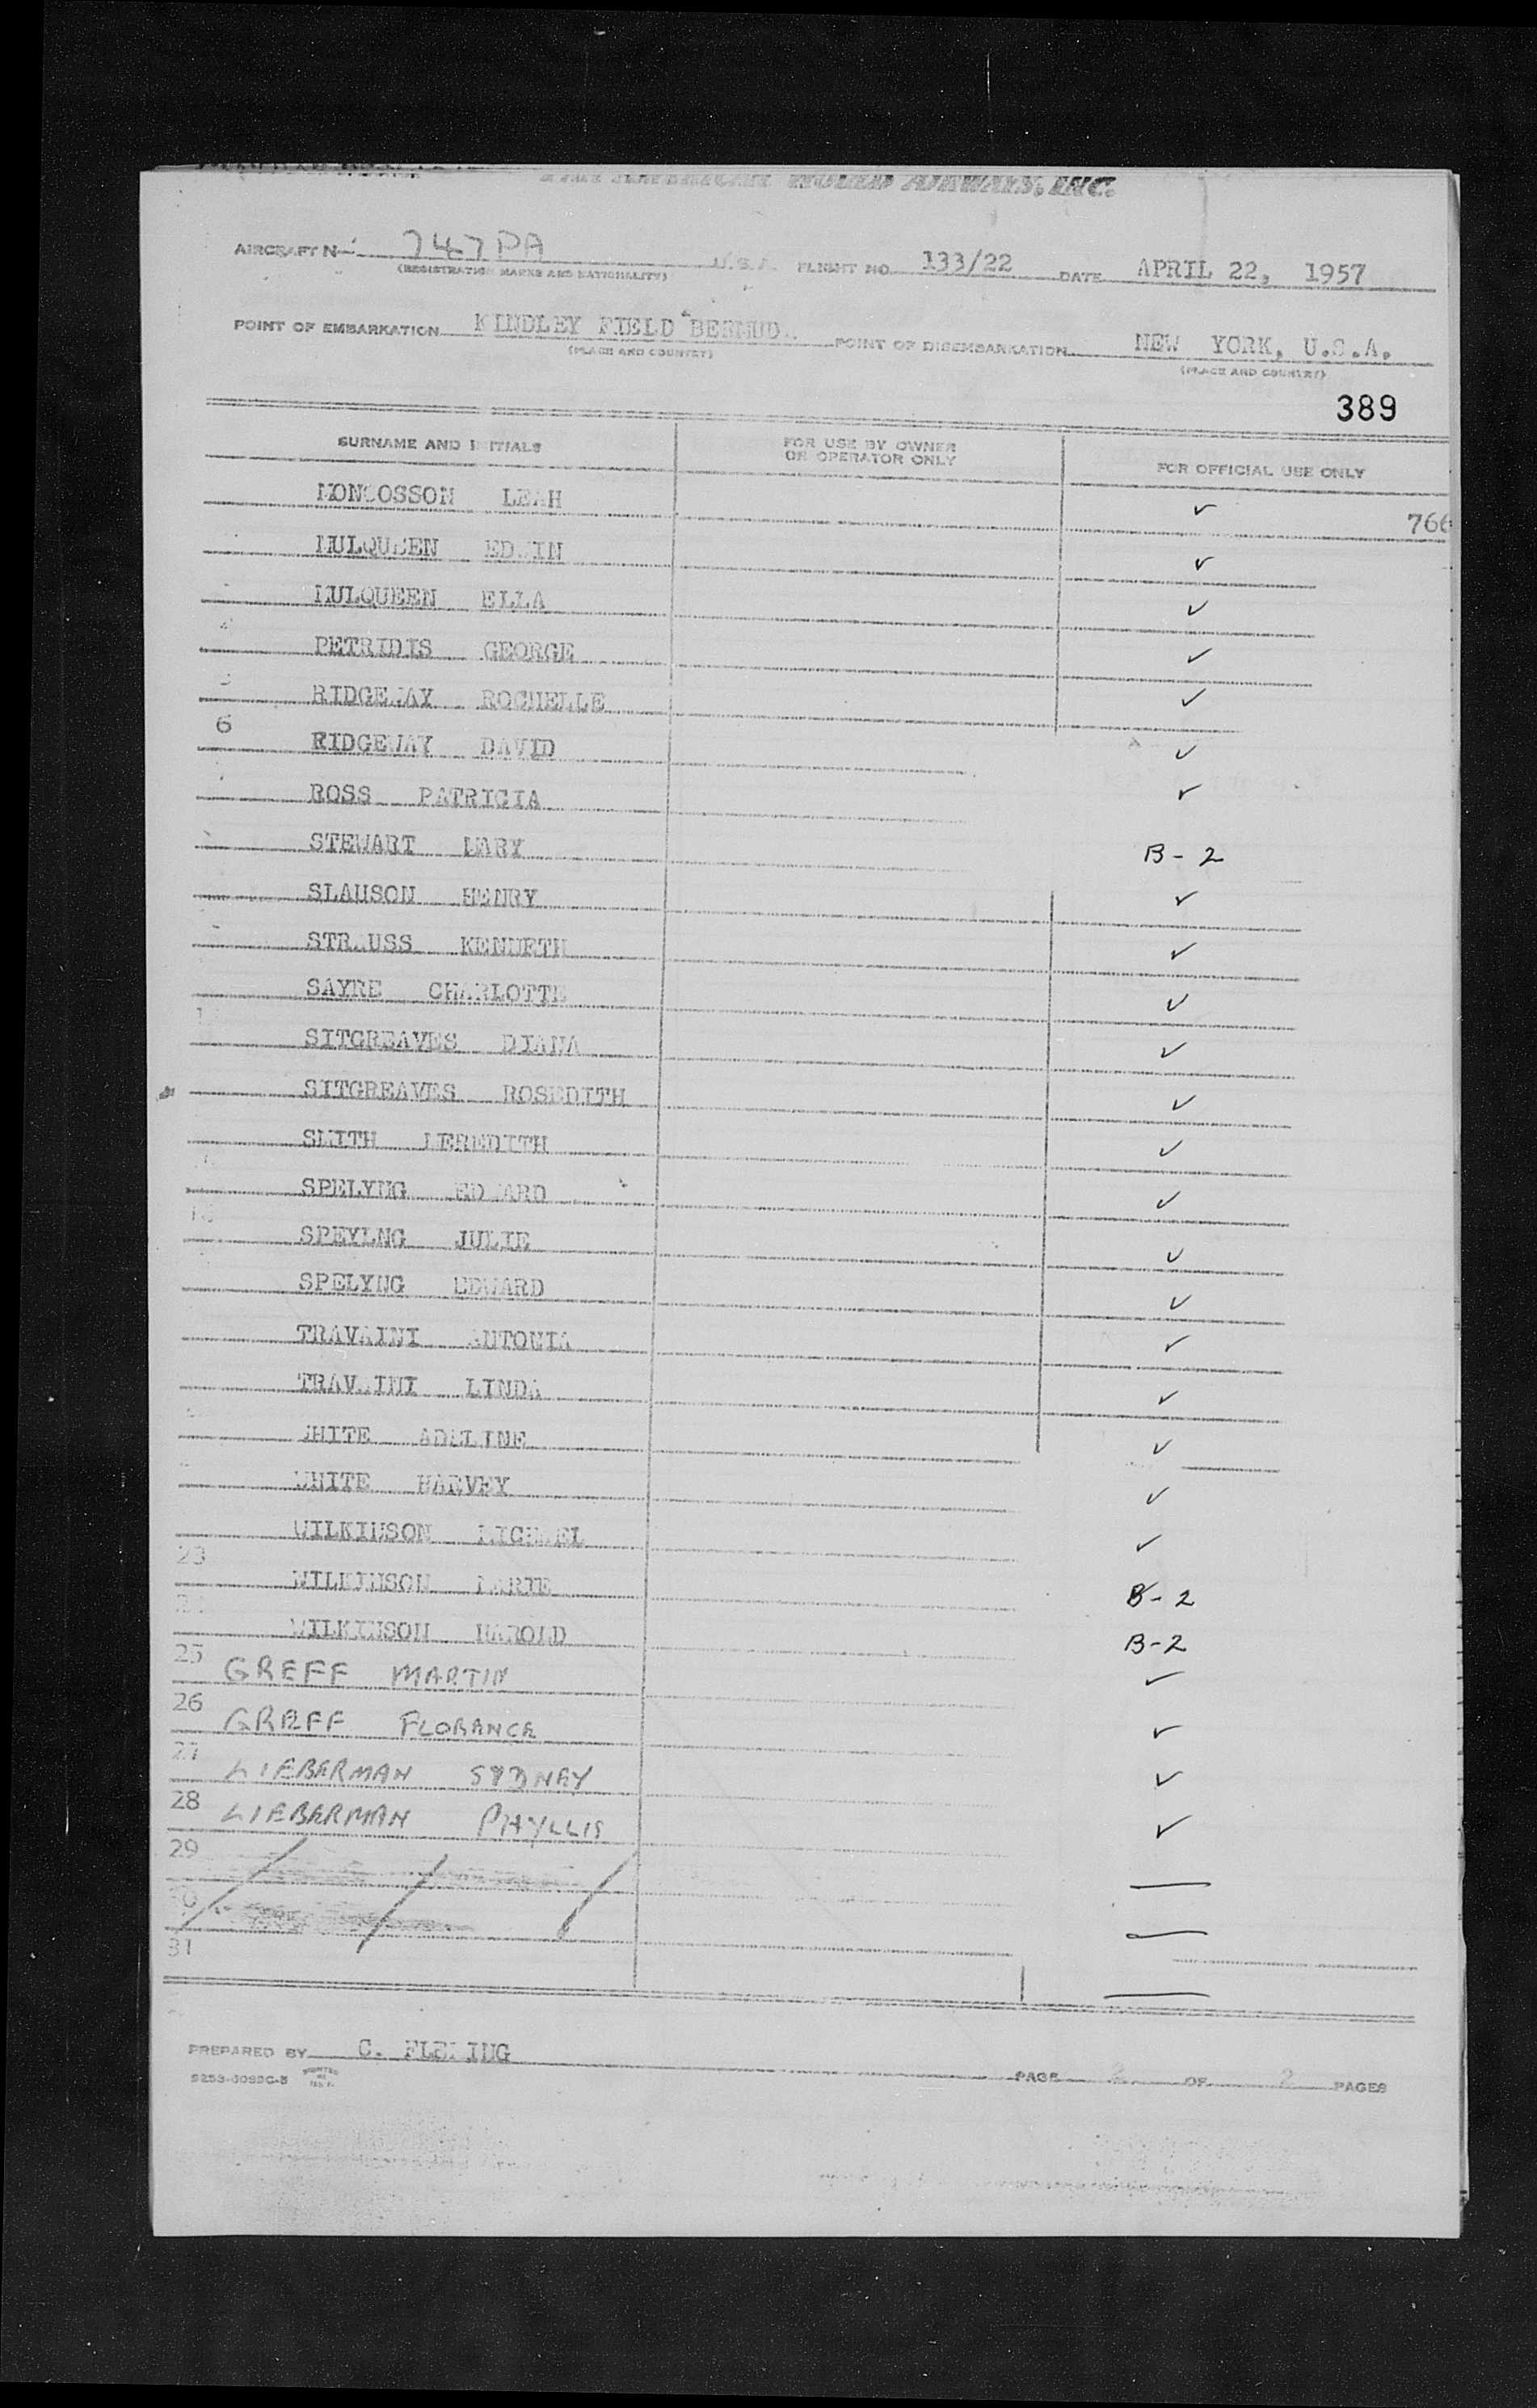 WORLD AIRWAYS, INC.
AIRCRAFT N 747PA U.S.A. FLIGHT NO. 133/22 DATE APRIL 22, 1957
(REGISTRATION MARKS AND NATIONALITY)
POINT OF EMBARKATION KINDLEY FIELD BERMUDA POINT OF DISEMBARKATION NEW YORK, U.S.A.
(PLACE AND COUNTRY) (PLACE AND COUNTRY)
389
SURNAME AND INITIALS FOR USE BY OWNER OR OPERATOR ONLY FOR OFFICIAL USE ONLY
MONCOSSON LEAH ✓ 766
MULQUEEN EDWIN ✓
MULQUEEN ELLA ✓
4 PETRIDIS GEORGE ✓
5 RIDGEWAY ROCHELLE ✓
6 RIDGEWAY DAVID ✓
ROSS PATRICIA ✓
STEWART MARY B-2
SLAUSON HENRY ✓
STRAUSS KENNETH ✓
SAYRE CHARLOTTE ✓
SITGREAVES DIANA ✓
SITGREAVES ROSEDITH ✓
SMITH MEREDITH ✓
SPELYNG EDWARD ✓
SPEYLNG JULIE ✓
SPELYNG EDWARD ✓
TRAVAINI ANTONIA ✓
TRAVAINI LINDA ✓
WHITE ADELINE ✓
WHITE HARVEY ✓
WILKINSON MICHAEL ✓
23 WILKINSON MARIE B-2
24 WILKINSON HAROLD B-2
25 GREFF MARTIN ✓
26 GREFF FLORANCE ✓
27 LIEBERMAN SYDNEY ✓
28 LIEBERMAN PHYLLIS ✓
29
30
31
PREPARED BY C. FLEMING
PAGE 2 OF 2 PAGES